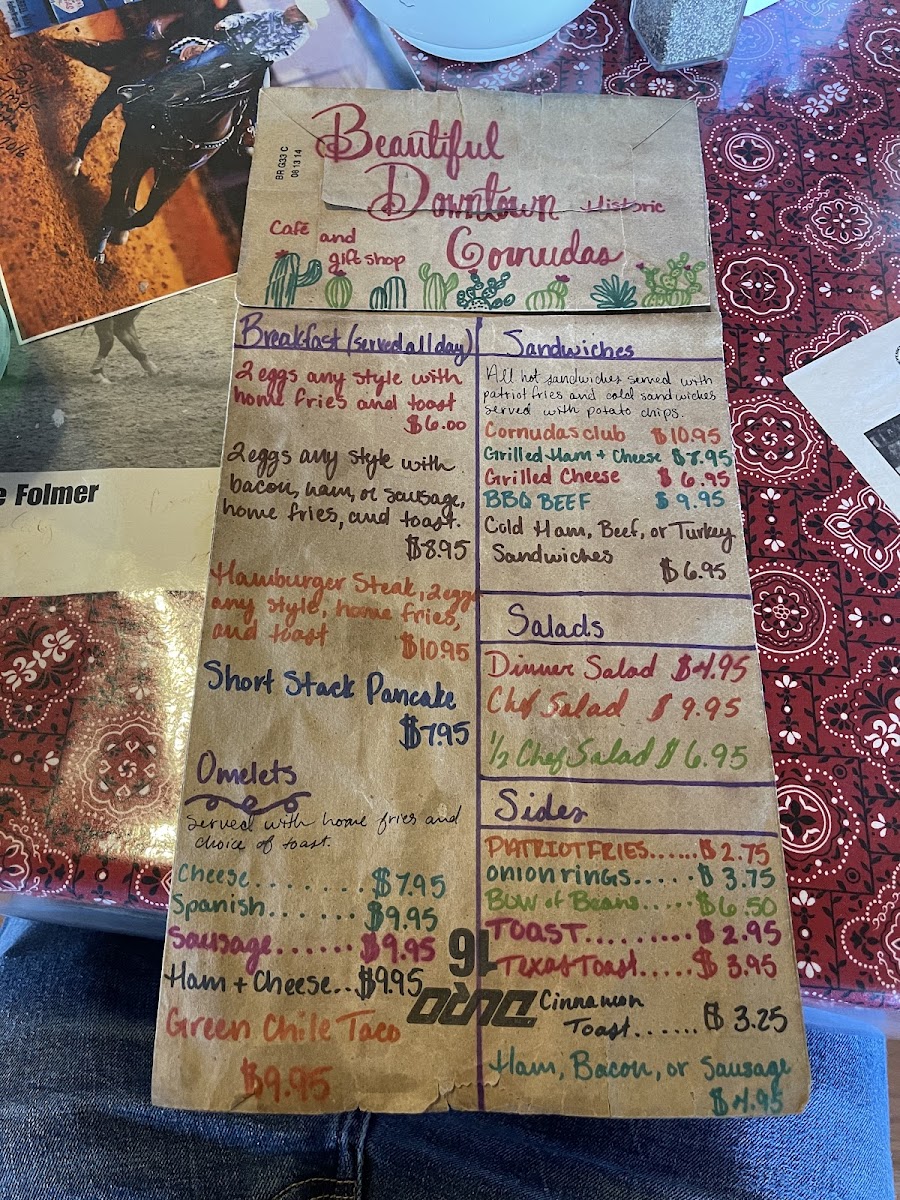 BR G33 C
08 13 14
Beautiful
Downtown Historic
Café and
gift shop
Cornudas
Breakfast (served all day)
2 eggs any style with
home fries and toast
$6.00
2 eggs any style with
bacon, ham, or sausage,
home fries, and toast.
$8.95
Hamburger Steak, 2 eggs
any style, home fries,
and toast $10.95
Short Stack Pancake
$7.95
Omelets
Served with home fries and
choice of toast.
Cheese........ $7.95
Spanish....... $9.95
Sausage...... $9.95
Ham + Cheese.. $9.95
Green Chile Taco
$9.95
Sandwiches
All hot sandwiches served with
patriot fries and cold sandwiches
served with potato chips.
Cornudas club $10.95
Grilled Ham + Cheese $8.95
Grilled Cheese $6.95
BBQ BEEF $9.95
Cold Ham, Beef, or Turkey
Sandwiches
$6.95
Salads
Dinner Salad $4.95
Chef Salad $9.95
1/2 Chef Salad $6.95
Sides
PATRIOT FRIES...... $2.75
onion rings..... $3.75
Bowl of Beans..... $6.50
TOAST......... $2.95
Texas Toast..... $3.95
Cinnamon
Toast...... $3.25
Ham, Bacon, or Sausage
$4.95
16
DURO
e Folmer
2016